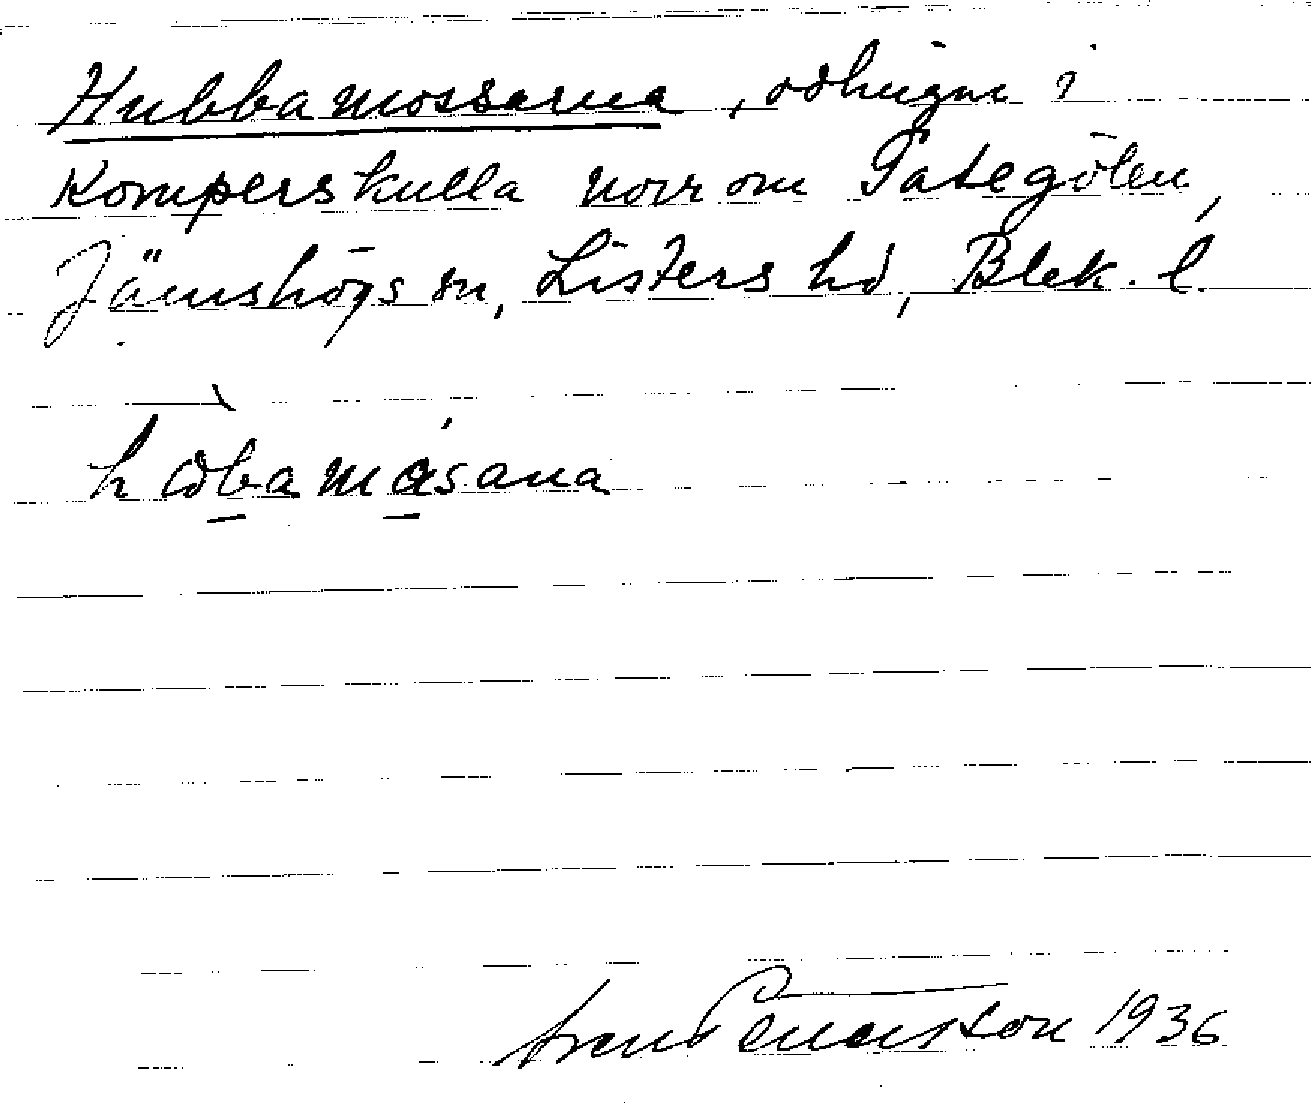 Hubbamossarna, odlingar i
Komperskulla norr om Pategölen,
Jämshögs sn, Listers hd, Blek. l.
Sven Benson 1936